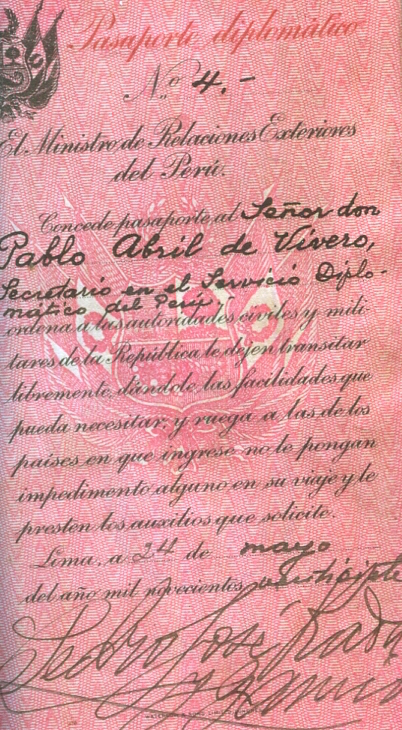 Pasaporte diplomático
No. 4.-
El Ministro de Relaciones Exteriores
del Perú.
Concede pasaporte al Señor don
Pablo Abril de Vivero,
Secretario en el Servicio Diplo-
mático del Perú,
ordena a las autoridades civiles y mili-
tares de la República le dejen transitar
libremente, dándole las facilidades que
pueda necesitar; y ruega a las de los
países en que ingrese no le pongan
impedimento alguno en su viaje y le
presten los auxilios que solicite.
Lima, a 24 de mayo
del año mil novecientos veintisiete
Pedro José Rada
y Gamio